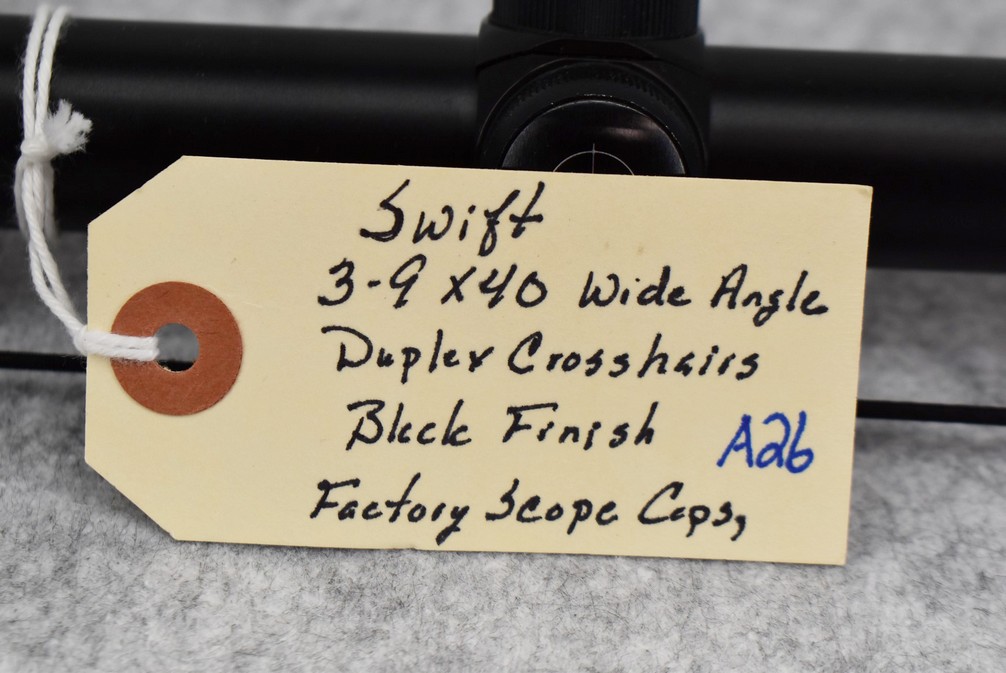 Swift
3-9 x40 Wide Angle
Duplex Crosshairs
Black Finish
A26
Factory Scope Caps,